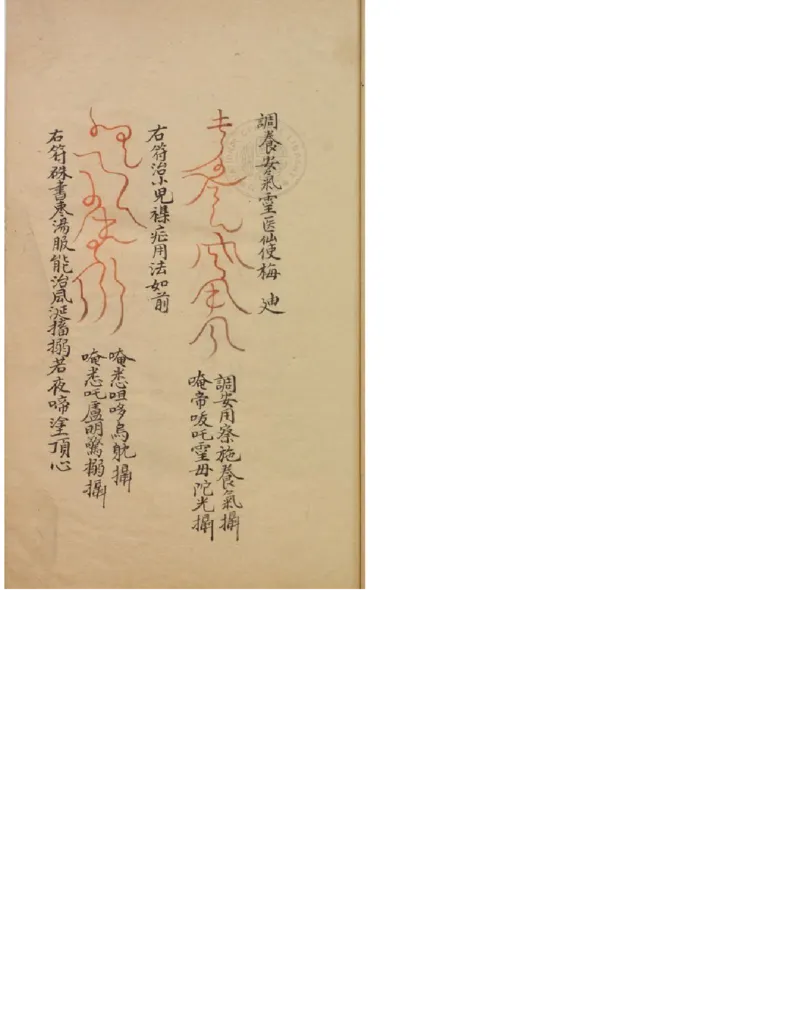 調養安氣靈医仙使梅 廸
調安用察施養氣攝
唵帝唆吒靈毋陀光攝
右符治小児襍症用法如前
唵悉咀哆烏躭攝
唵悉吒盧明驚搦攝
右符硃書棗湯服能治風涎搐搦若夜啼塗頂心